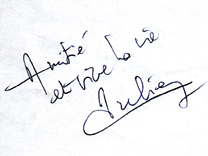 Amitié
et vive la vie
Julien